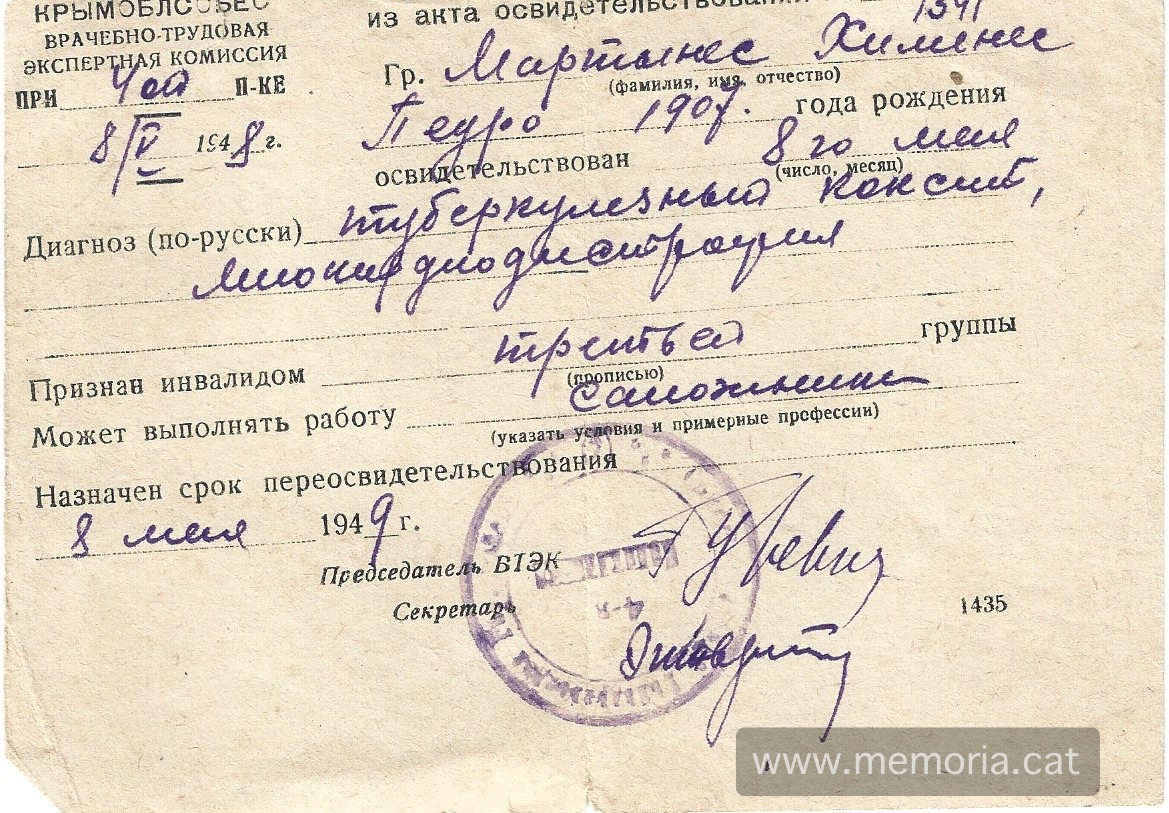 КРЫМОБЛСОБЕС
ВРАЧЕБНО-ТРУДОВАЯ
ЭКСПЕРТНАЯ КОМИССИЯ
ПРИ 4ой П-КЕ
8/V 1948 г.
из акта освидетельствования 1541
Гр. Мартынес Хименес
(фамилия, имя, отчество)
Педро 1907. года рождения
освидетельствован 8го мая
(число, месяц)
Диагноз (по-русски) туберкулезный коксит,
миокардиодистрофия
Признан инвалидом третьей группы
(прописью)
Может выполнять работу сапожника
(указать условия и примерные профессии)
Назначен срок переосвидетельствования
8 мая 1949 г.
Председатель ВТЭК Гуревич
Секретарь
1435
www.memoria.cat